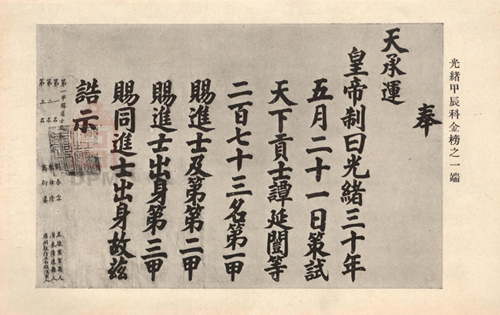 光緒甲辰科金榜之一端
奉
天承運
皇帝制曰光緒三十年
五月二十一日策試
天下貢士譚延闓等
二百七十三名第一甲
賜進士及第第二甲
賜進士出身第三甲
賜同進士出身故茲
誥示
第一甲賜進士
第一名
第二名
第三名